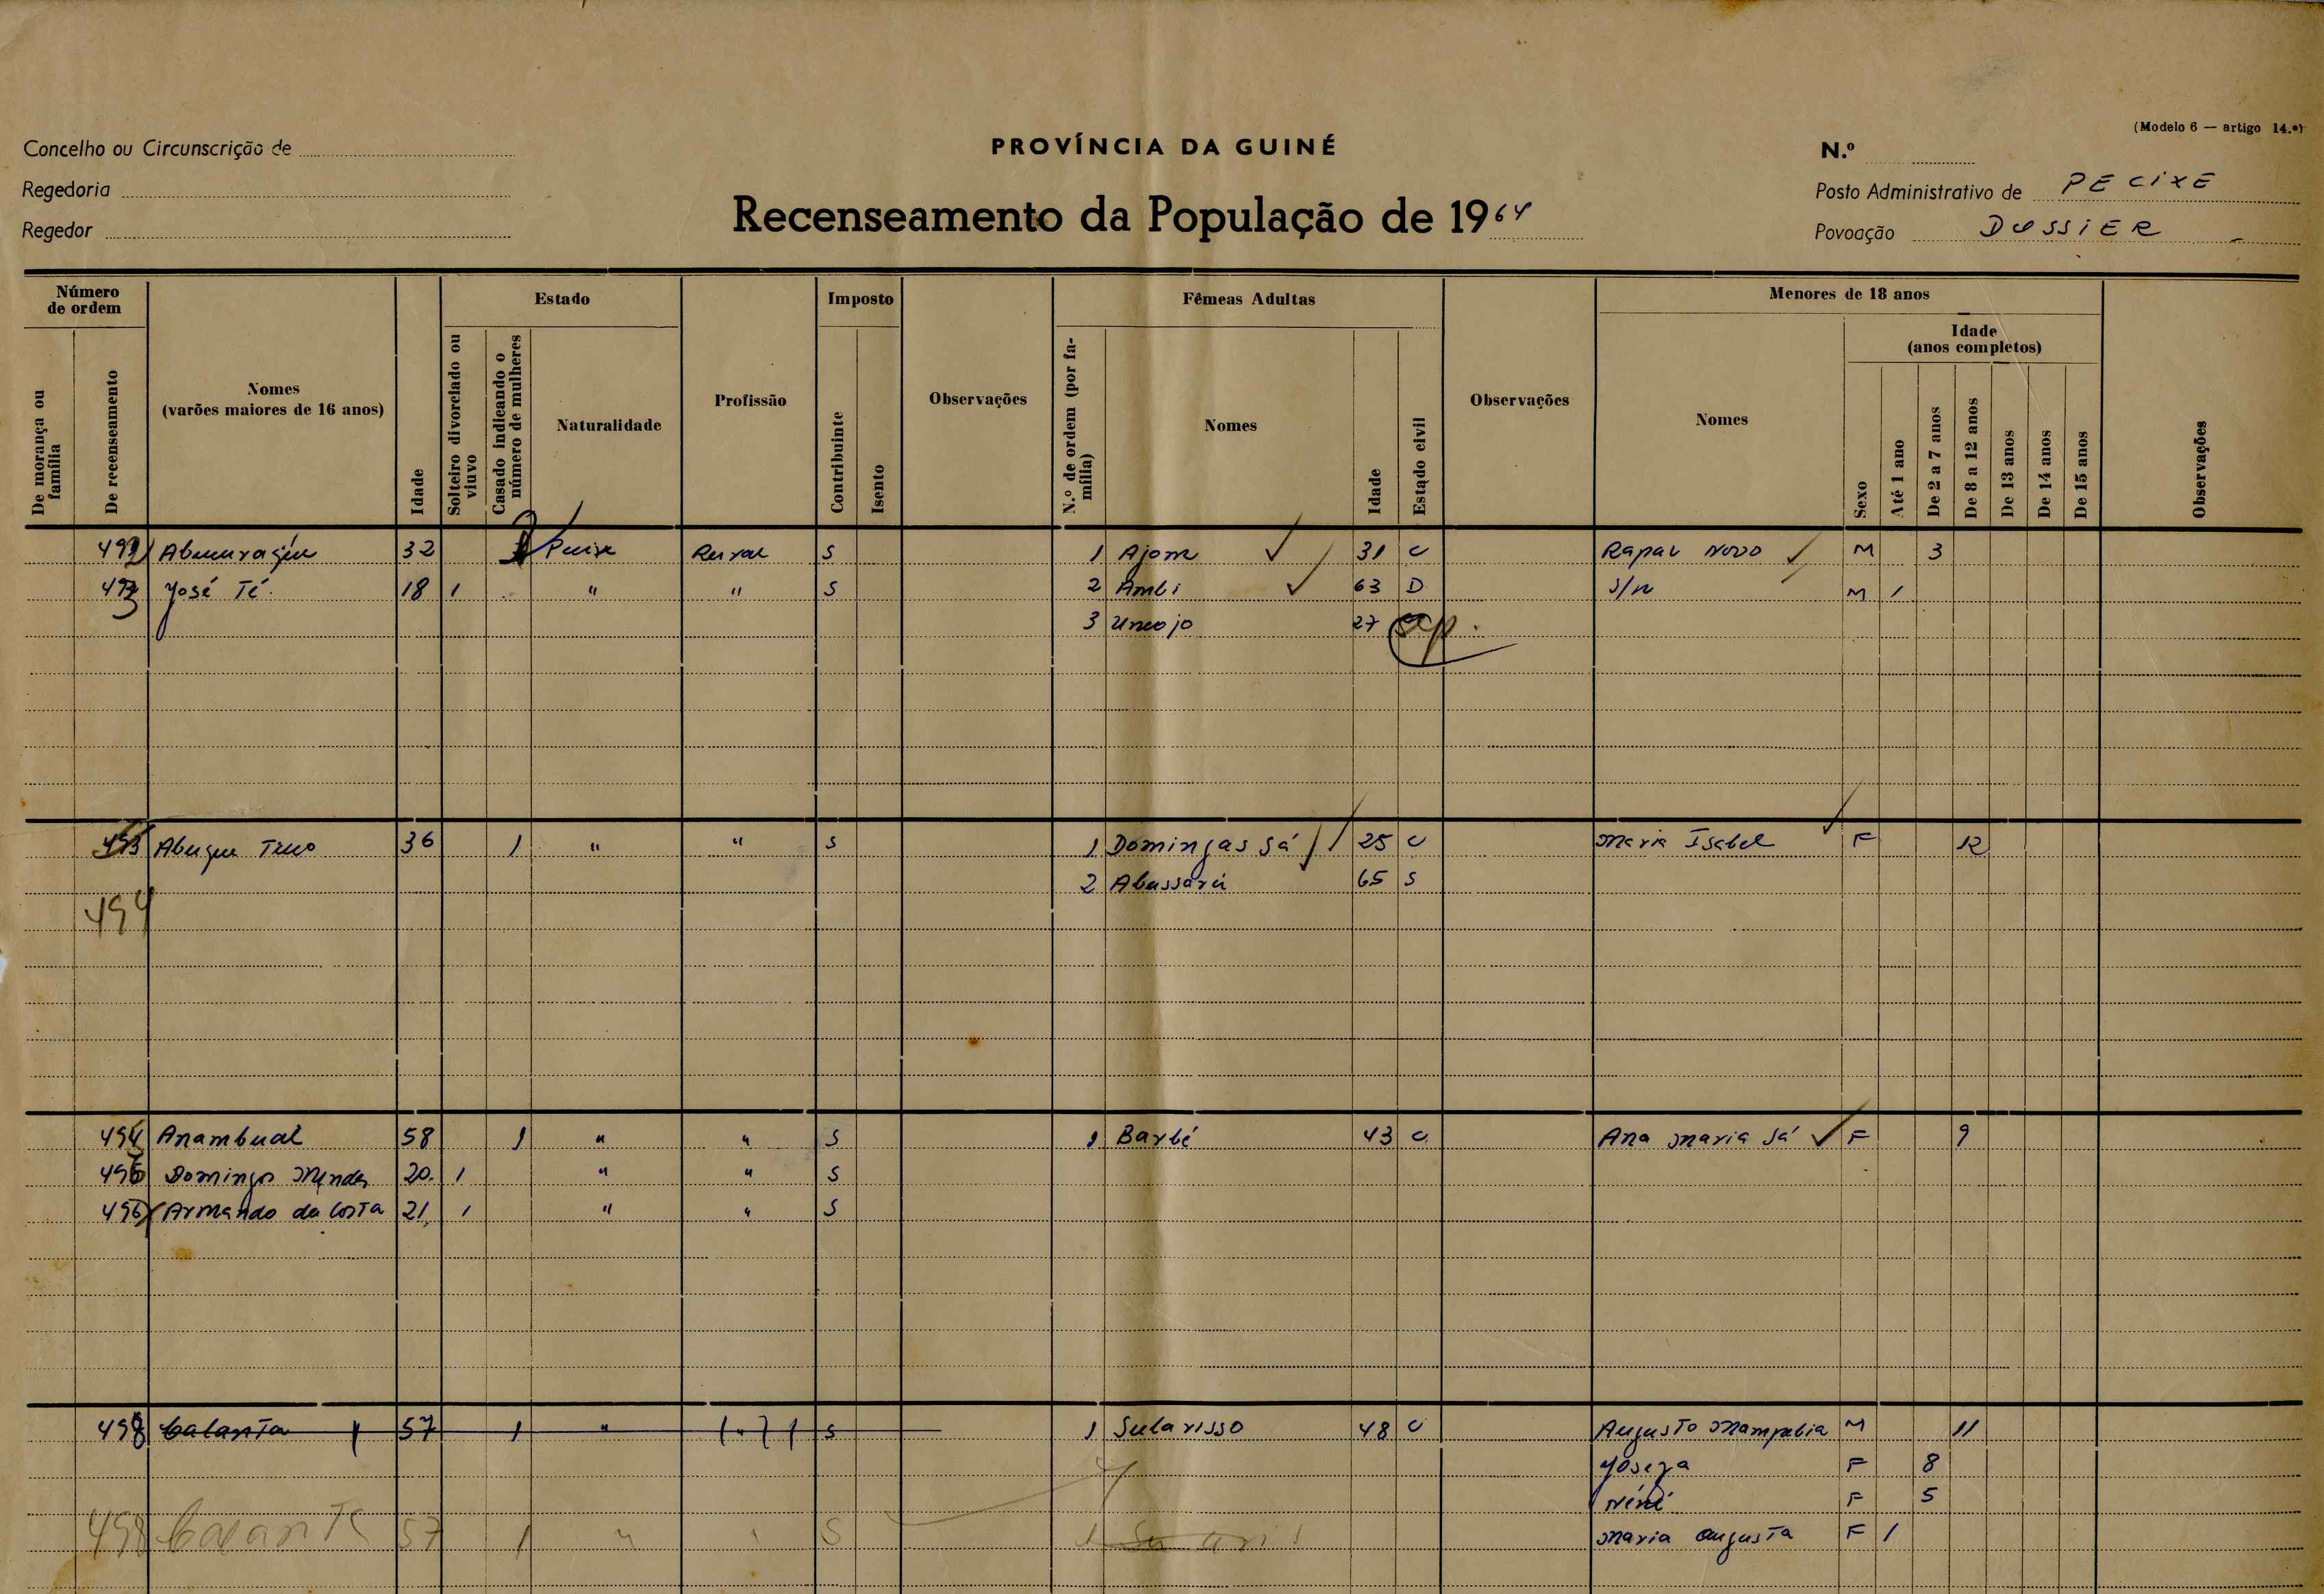 (Modelo 6 — artigo 14.º)
Concelho ou Circunscrição de
PROVÍNCIA DA GUINÉ
N.º
Regedoria
Recenseamento da População de 1964
Posto Administrativo de PECIXE
Regedor
Povoação
Número de ordem
De morança ou família
De recenseamento
Nomes
(varões maiores de 16 anos)
Idade
Estado
Solteiro divorciado ou viuvo
Casado indicando o número de mulheres
Naturalidade
Profissão
Imposto
Contribuinte
Isento
Observações
Fêmeas Adultas
N.º de ordem (por família)
Nomes
Idade
Estado civil
Observações
Menores de 18 anos
Nomes
Sexo
Idade
(anos completos)
Até 1 ano
De 2 a 7 anos
De 8 a 12 anos
De 13 anos
De 14 anos
De 15 anos
Observações
492 32 S 1 Ajom 31 C Novo M 3
493 José Té 18 1 " " S 2 Ambi 63 D S/N M 1
3 27
36 1 " " S 1 Domingas Sá 25 C Maria Isabel F 12
2 65 S
494
Anambual 58 1 " " S 1 Barbé 43 C Ana Maria Sá F 9
Domingos Mendes 20 1 " " S
Armando da Costa 21 1 " " S
498 Calanta 57 1 " " S 1 Sularisso 48 C Augusto M 11
F 8
Néné F 5
498 Calanta 57 1 " " S 1 Maria Augusta F 1